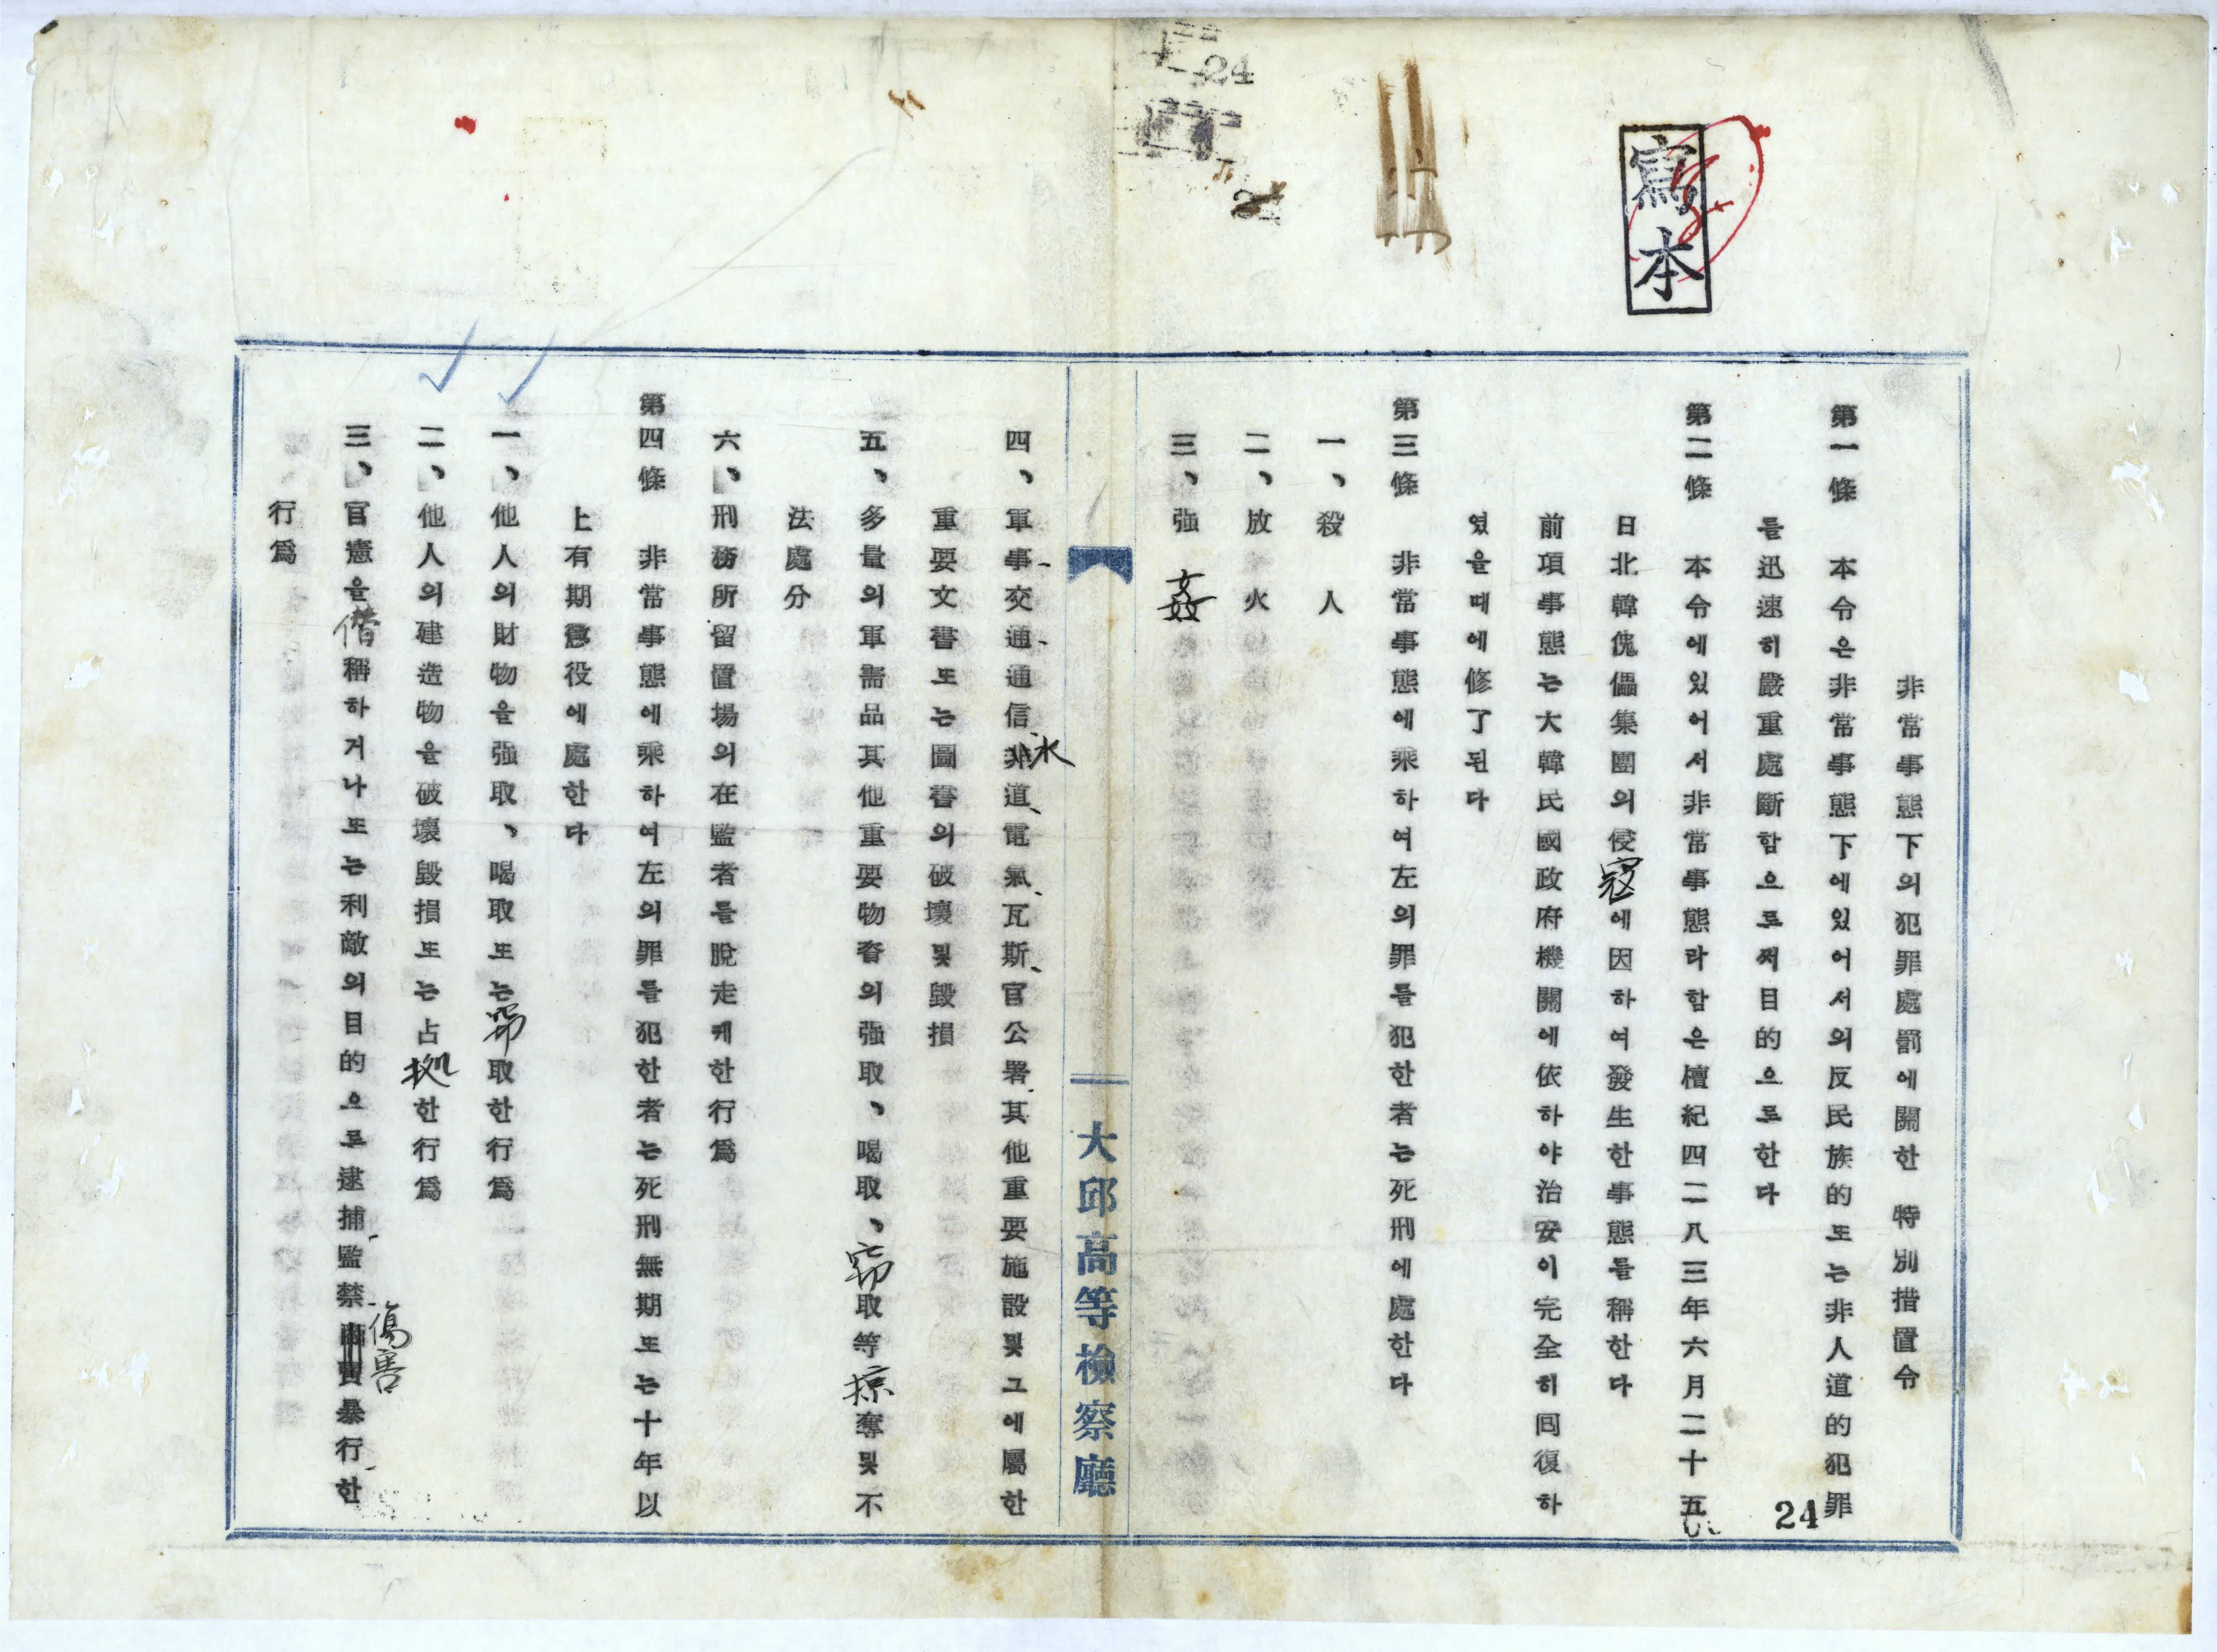 寫本
非常事態下의犯罪處罰에關한 特別措置令
第一條 本令은非常事態下에있어서의反民族的또는非人道的犯罪
를迅速히嚴重處斷함으로써目的으로한다
第二條 本令에있어서非常事態라함은檀紀四二八三年六月二十五
日北韓傀儡集團의侵寇에因하여發生한事態를稱한다
前項事態는大韓民國政府機關에依하야治安이完全히回復하
였을때에修了된다
第三條 非常事態에乘하여左의罪를犯한者는死刑에處한다
一、殺人
二、放火
三、强姦
大邱高等檢察廳
四、軍事、交通、通信、水道、電氣、瓦斯、官公署、其他重要施設및그에屬한
重要文書또는圖書의破壞및毀損
五、多量의軍需品其他重要物資의强取、喝取、窃取等掠奪및不
法處分
六、刑務所留置場의在監者를脫走케한行爲
第四條 非常事態에乘하여左의罪를犯한者는死刑無期또는十年以
上有期懲役에處한다
一、他人의財物을强取、喝取또는窃取한行爲
二、他人의建造物을破壞毀損또는占拠한行爲
三、官憲을僭稱하거나또는利敵의目的으로逮捕、監禁、傷害暴行、한
行爲
24